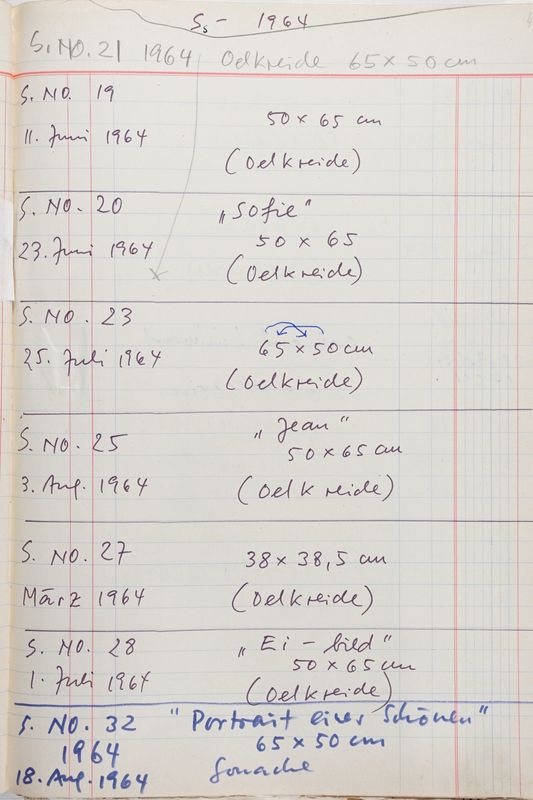 Ss - 1964
S. NO. 21 1964 Oelkreide 65 x 50 cm
S. NO. 19
50 x 65 cm
11. Juni 1964
(Oelkreide)
S. NO. 20 „Sofie"
50 x 65
23. Juni 1964
(Oelkreide)
S. NO. 23
65 x 50 cm
25. Juli 1964
(Oelkreide)
„Jean"
S. NO. 25
50 x 65 cm
3. Aug. 1964
(Oelkreide)
S. NO. 27
38 x 38,5 cm
März 1964
(Oelkreide)
S. NO. 28 „Ei - bild"
50 x 65 cm
1. Juli 1964
(Oelkreide)
S. NO. 32 "Portrait einer Schönen"
1964 65 x 50 cm
18. Aug. 1964 Gouache